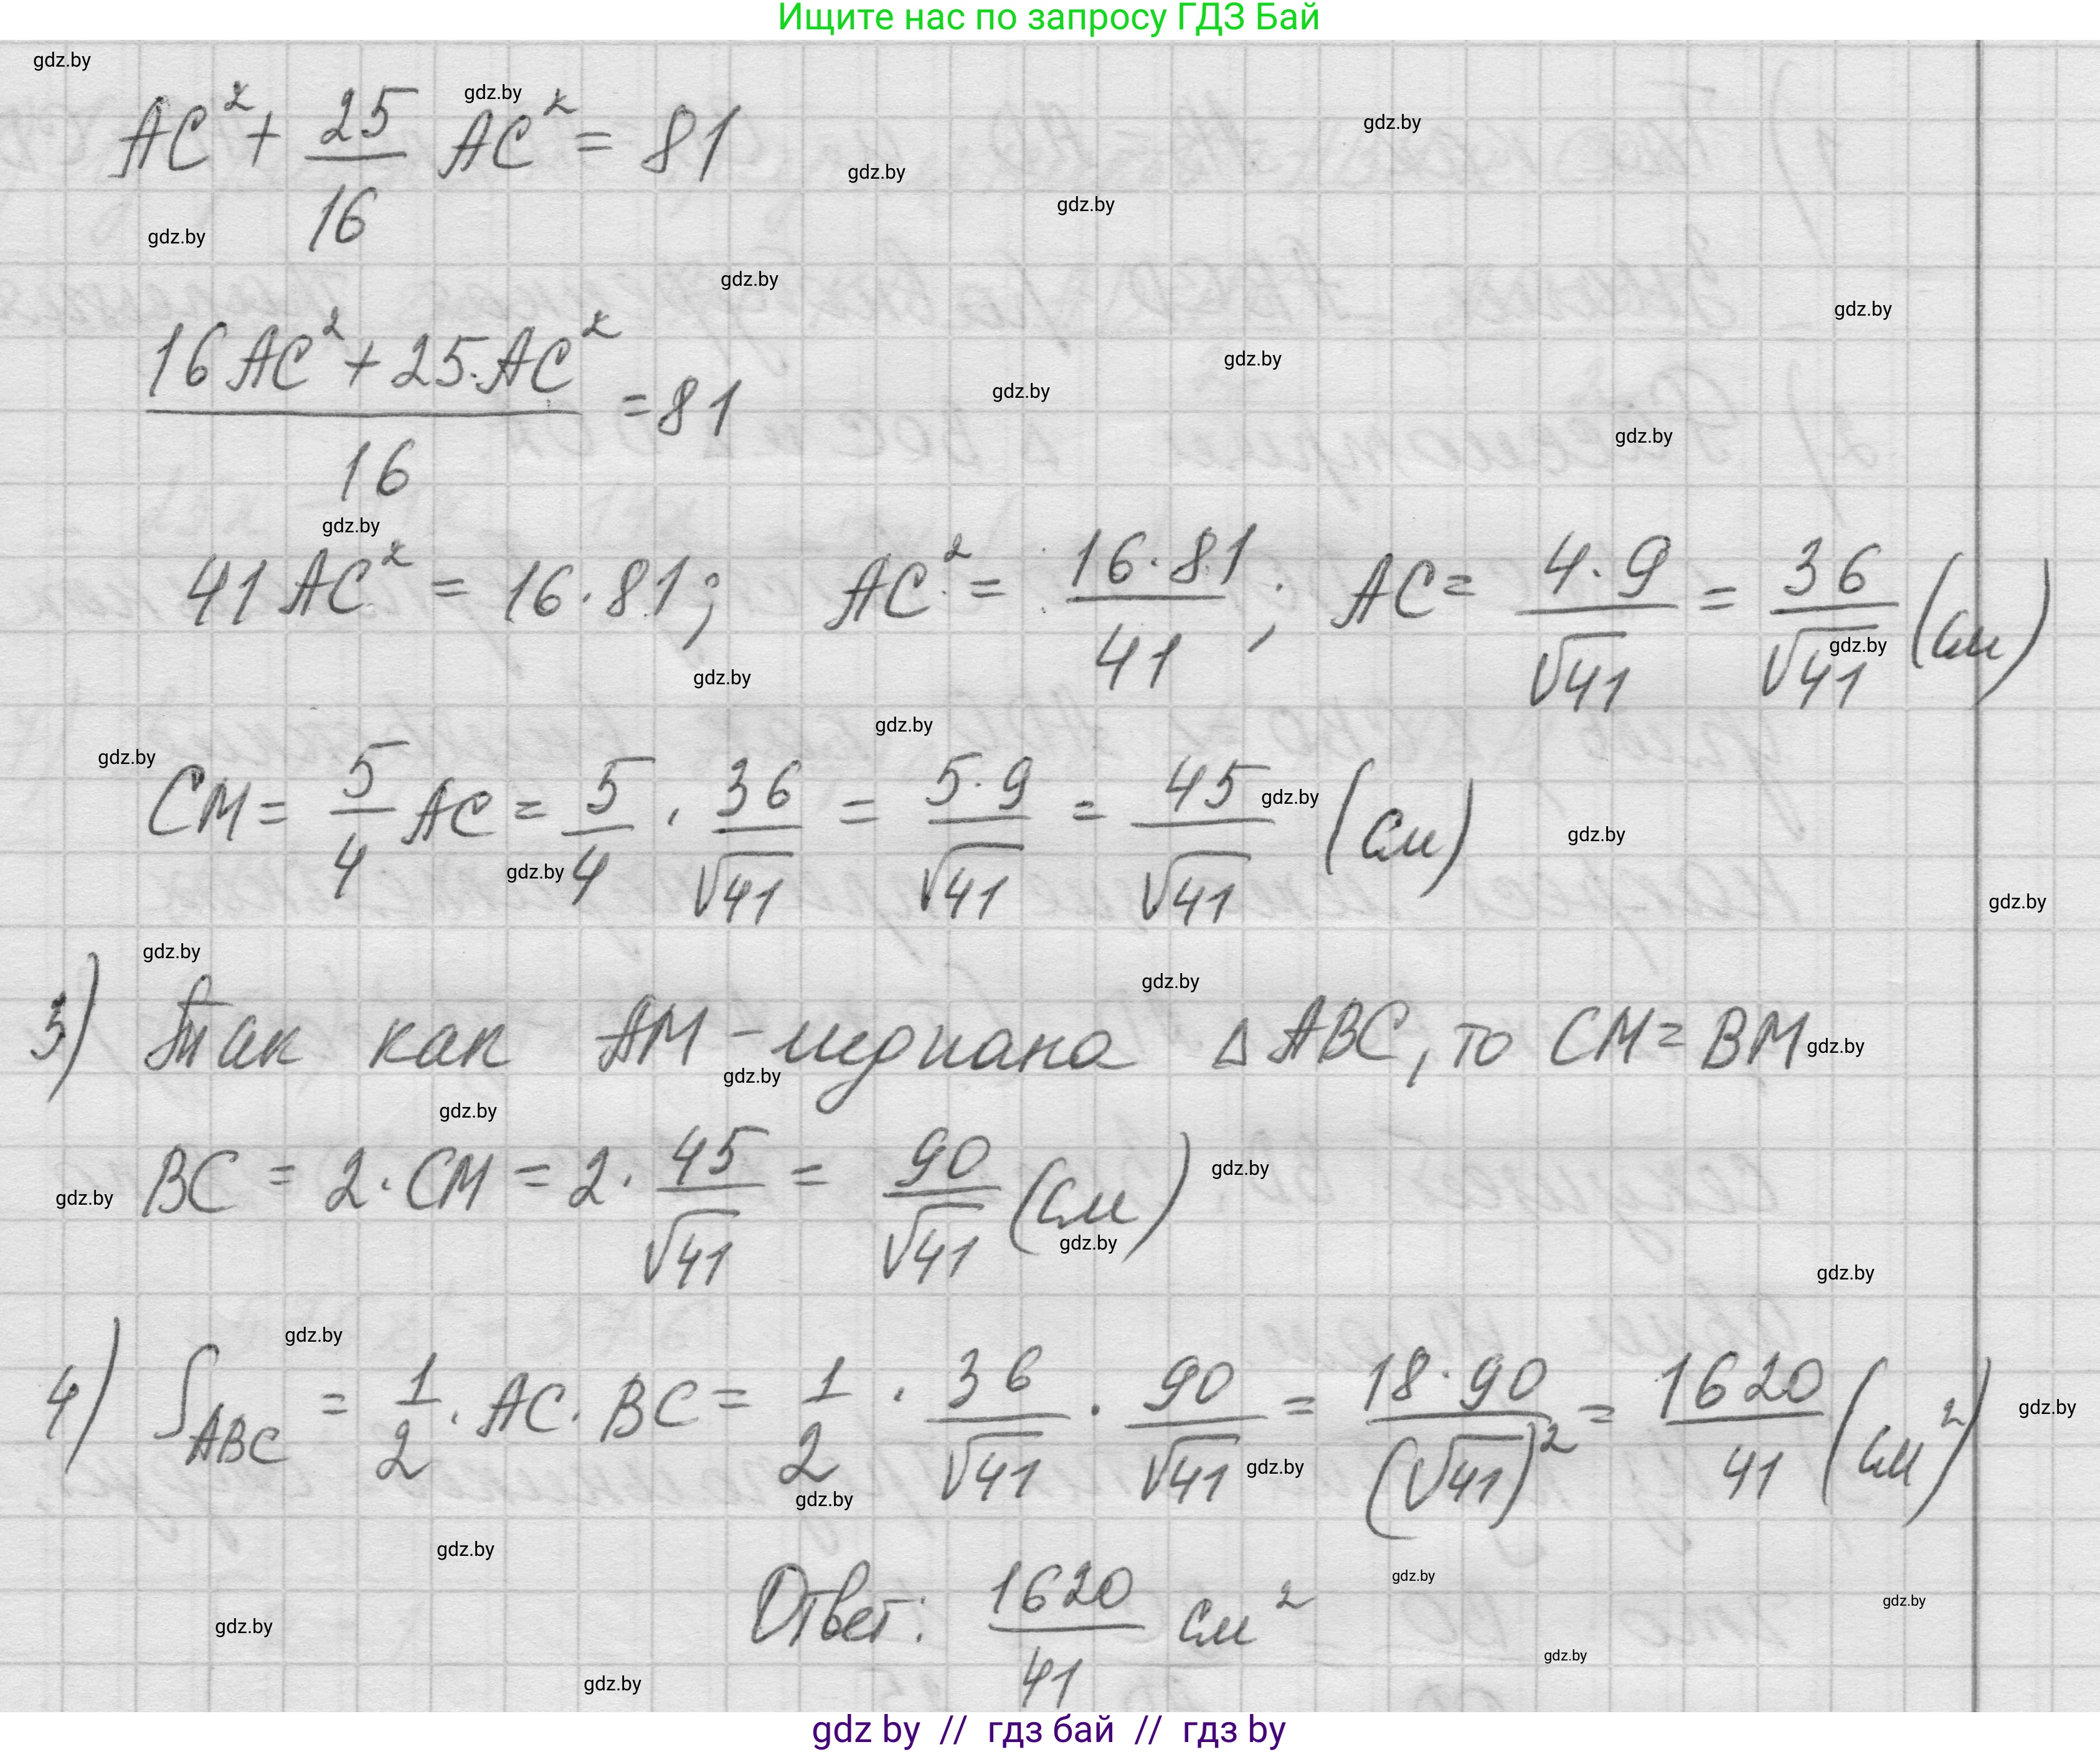 Ищите нас по запросу ГДЗ Бай
AC² + 25/16 AC² = 81
(16AC² + 25·AC²)/16 = 81
41AC² = 16·81; AC² = 16·81/41; AC = 4·9/√41 = 36/√41 (см)
CM = 5/4 AC = 5/4 · 36/√41 = 5·9/√41 = 45/√41 (см)
3) Так как AM - медиана △ABC, то CM = BM
BC = 2·CM = 2·45/√41 = 90/√41 (см)
4) S_ABC = 1/2 · AC · BC = 1/2 · 36/√41 · 90/√41 = 18·90/(√41)² = 1620/41 (см²)
Ответ: 1620/41 см²
gdz by // гдз бай // гдз by